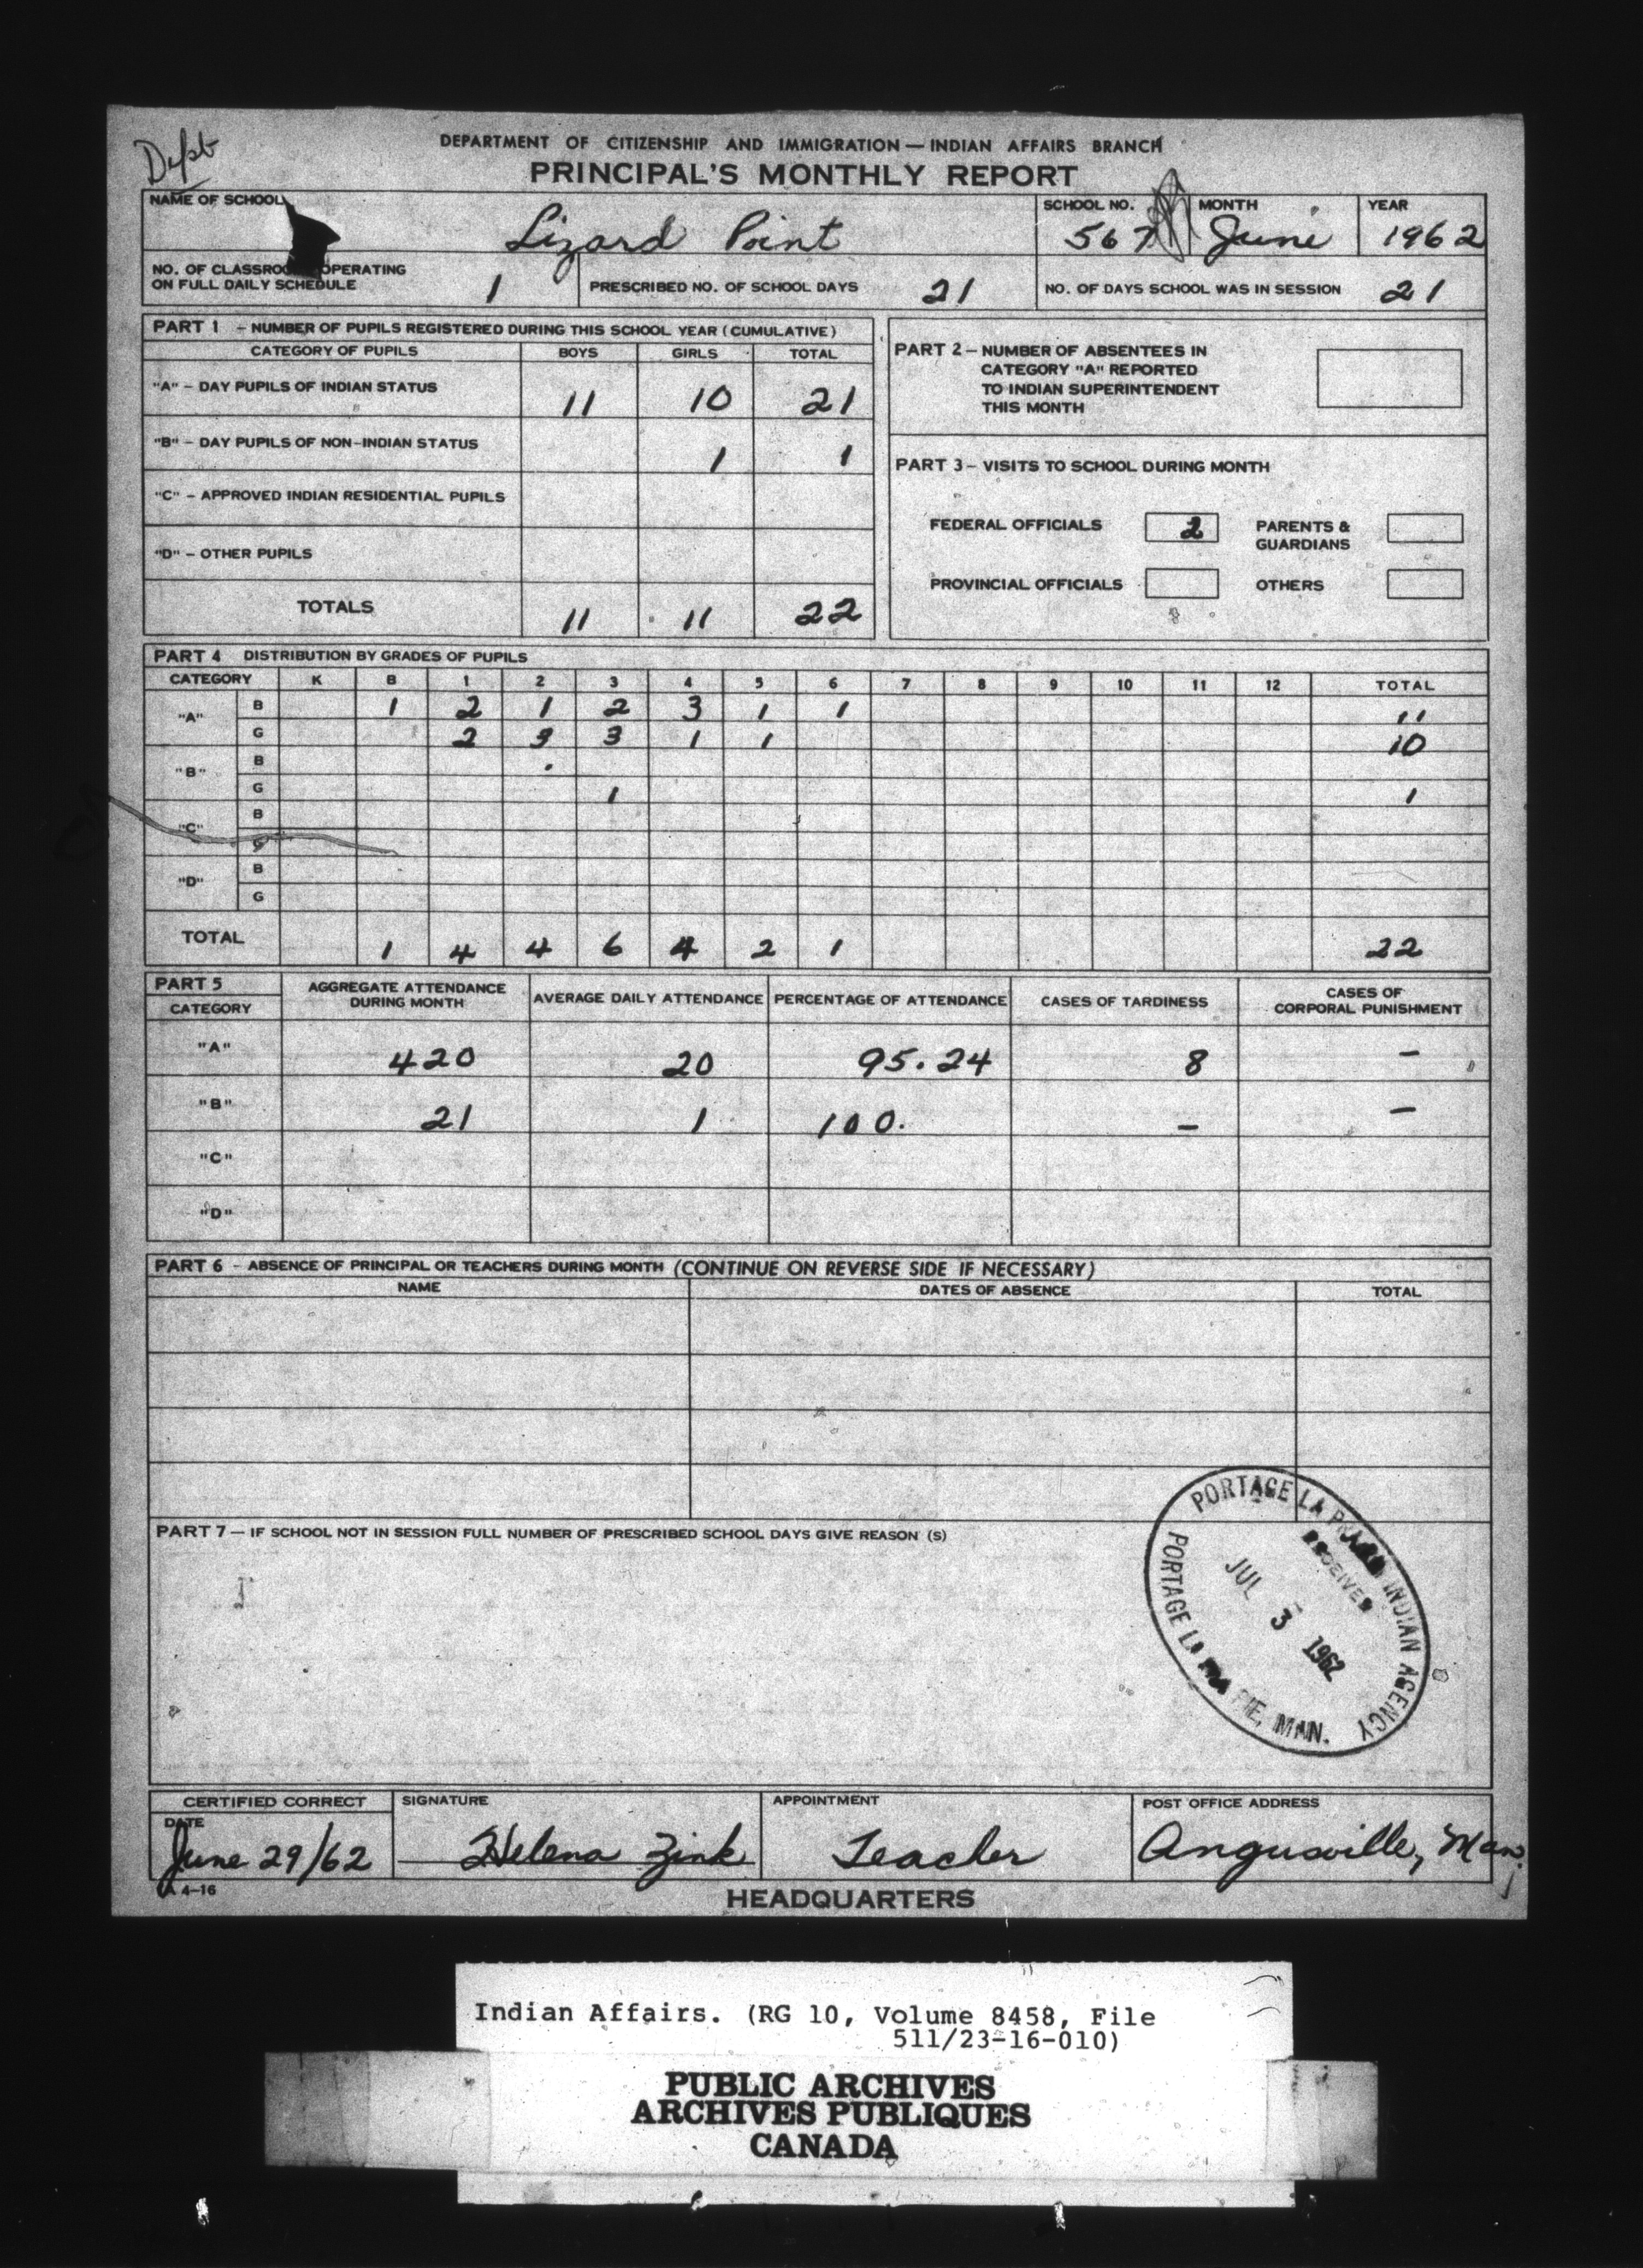 Dept
DEPARTMENT OF CITIZENSHIP AND IMMIGRATION — INDIAN AFFAIRS BRANCH
PRINCIPAL'S MONTHLY REPORT
NAME OF SCHOOL Lizard Point SCHOOL NO. 567 MONTH June YEAR 1962
NO. OF CLASSROOMS OPERATING
ON FULL DAILY SCHEDULE 1 PRESCRIBED NO. OF SCHOOL DAYS 21 NO. OF DAYS SCHOOL WAS IN SESSION 21
PART 1 – NUMBER OF PUPILS REGISTERED DURING THIS SCHOOL YEAR (CUMULATIVE)
CATEGORY OF PUPILS BOYS GIRLS TOTAL
"A" – DAY PUPILS OF INDIAN STATUS 11 10 21
"B" – DAY PUPILS OF NON-INDIAN STATUS 1 1
"C" – APPROVED INDIAN RESIDENTIAL PUPILS
"D" – OTHER PUPILS
TOTALS 11 11 22
PART 2 – NUMBER OF ABSENTEES IN
CATEGORY "A" REPORTED
TO INDIAN SUPERINTENDENT
THIS MONTH
PART 3 – VISITS TO SCHOOL DURING MONTH
FEDERAL OFFICIALS 2 PARENTS &
GUARDIANS
PROVINCIAL OFFICIALS OTHERS
PART 4 DISTRIBUTION BY GRADES OF PUPILS
CATEGORY K B 1 2 3 4 5 6 7 8 9 10 11 12 TOTAL
"A" B 1 2 1 2 3 1 1 11
G 2 3 3 1 1 10
"B" B
G 1 1
"C" B
G
"D" B
G
TOTAL 1 4 4 6 4 2 1 22
PART 5
CATEGORY AGGREGATE ATTENDANCE
DURING MONTH AVERAGE DAILY ATTENDANCE PERCENTAGE OF ATTENDANCE CASES OF TARDINESS CASES OF
CORPORAL PUNISHMENT
"A" 420 20 95.24 8 –
"B" 21 1 100. – –
"C"
"D"
PART 6 – ABSENCE OF PRINCIPAL OR TEACHERS DURING MONTH (CONTINUE ON REVERSE SIDE IF NECESSARY)
NAME DATES OF ABSENCE TOTAL
PART 7 — IF SCHOOL NOT IN SESSION FULL NUMBER OF PRESCRIBED SCHOOL DAYS GIVE REASON (S)
PORTAGE LA PRAIRIE INDIAN AGENCY
RECEIVED
JUL 3 1962
PORTAGE LA PRAIRIE, MAN.
CERTIFIED CORRECT SIGNATURE APPOINTMENT POST OFFICE ADDRESS
DATE
June 29/62 Helena Zink Teacher Angusville, Man.
IA 4-16
HEADQUARTERS
Indian Affairs. (RG 10, Volume 8458, File
511/23-16-010)
PUBLIC ARCHIVES
ARCHIVES PUBLIQUES
CANADA